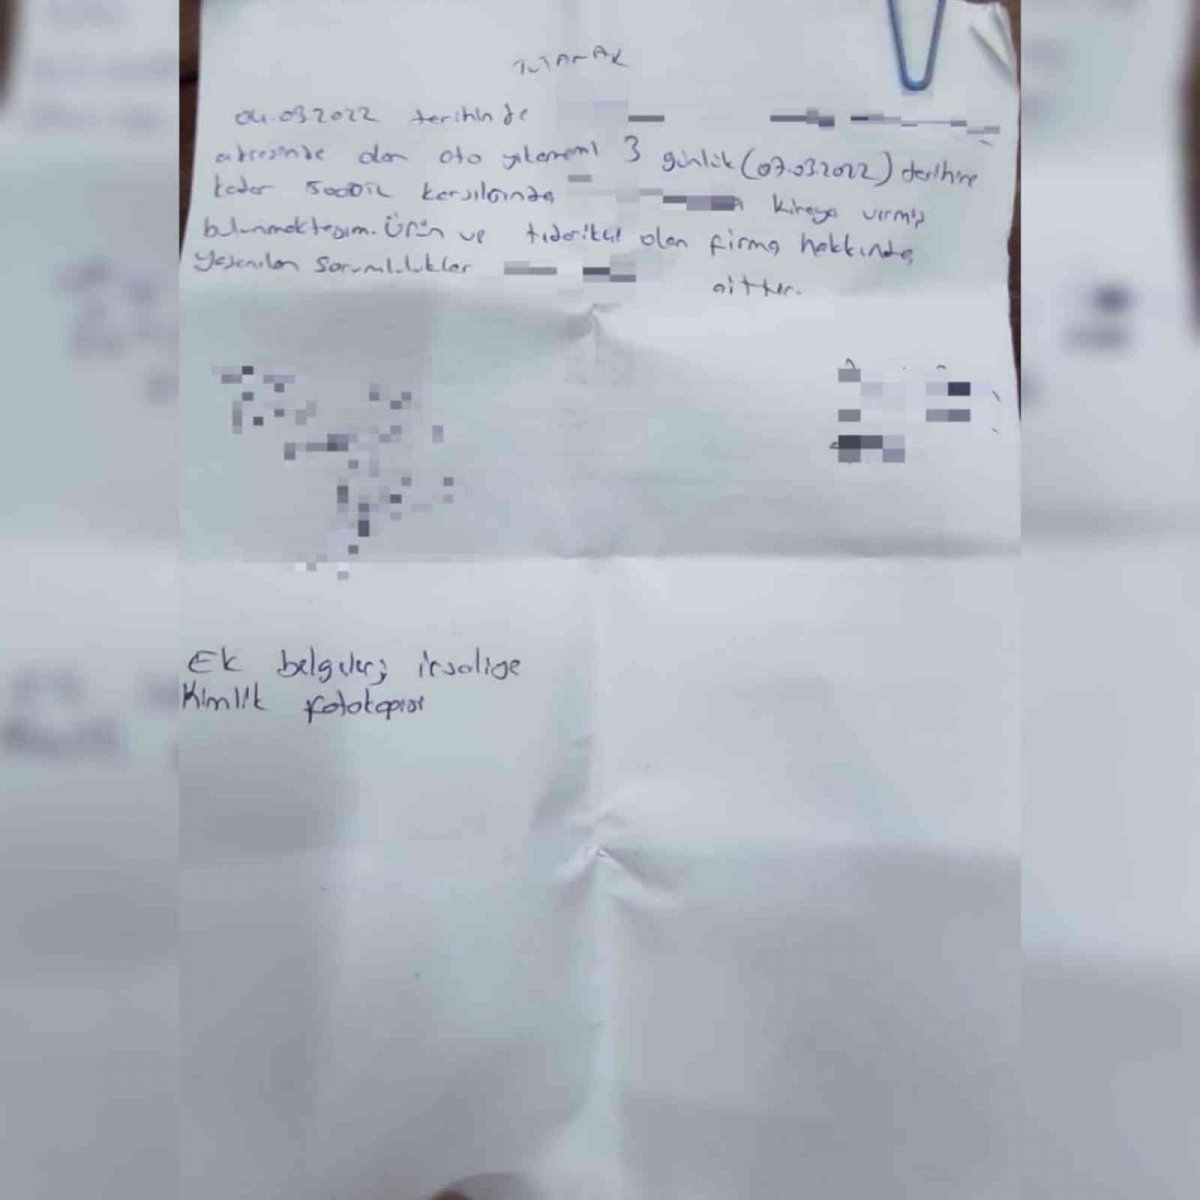 TUTANAK
04.03.2022 tarihinde
adresinde olan oto yıkamamı 3 günlük (07.03.2022) tarihine
kadar 5000TL karşılığında kiraya vermiş
bulunmaktayım. Ürün ve olan firma hakkında
yaşanılan sorumluluklar aittir.
Ek belgeler; irsaliye
Kimlik fotokopisi